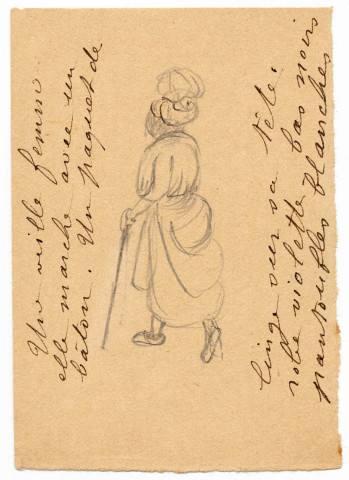 Une vieille femme.
elle marche avec un
bâton. Un paquet de
linge sur sa tête.
robe violette bas noirs
pantoufles blanches